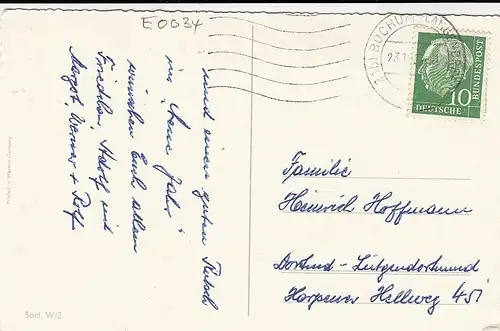 E0034
und einen guten Rutsch
ins "Neue Jahr"
wünschen Euch allen
Friedchen, Adolf mit
Margot, Werner + Rolf
BOCHUM-LANGENDREER
DEUTSCHE BUNDESPOST
10
Familie
Heinrich Hoffmann
Dortmund-Lütgendortmund
Harpener Hellweg 451
Printed in Western Germany
Sort. W/2